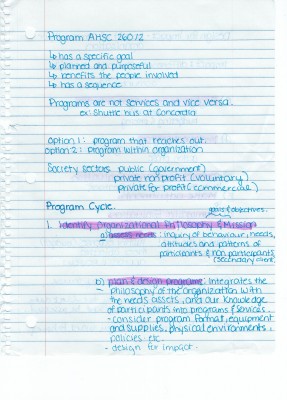 Program AHSC 260/2
↳ has a specific goal
↳ planned and purposeful
↳ benefits the people involved
↳ has a sequence
Programs are not services and vice versa.
ex: Shuttle bus at Concordia
Option 1: program that reaches out.
Option 2: Program within organization
Society sectors: public (government)
private non profit (voluntary)
private for profit (commercial)
Program Cycle.
goals & objectives.
1. Identify Organizational Philosophy & Mission
a) assess needs: inquiry of behaviour, needs,
attitudes and patterns of
participants & non participants
(secondary
b) plan & design programs: Integrates the
philosophy of the organization with
the needs assets, and our knowledge
of participants into programs & services.
- consider program format, equipment
and supplies, physical environments,
policies etc.
- design for impact -